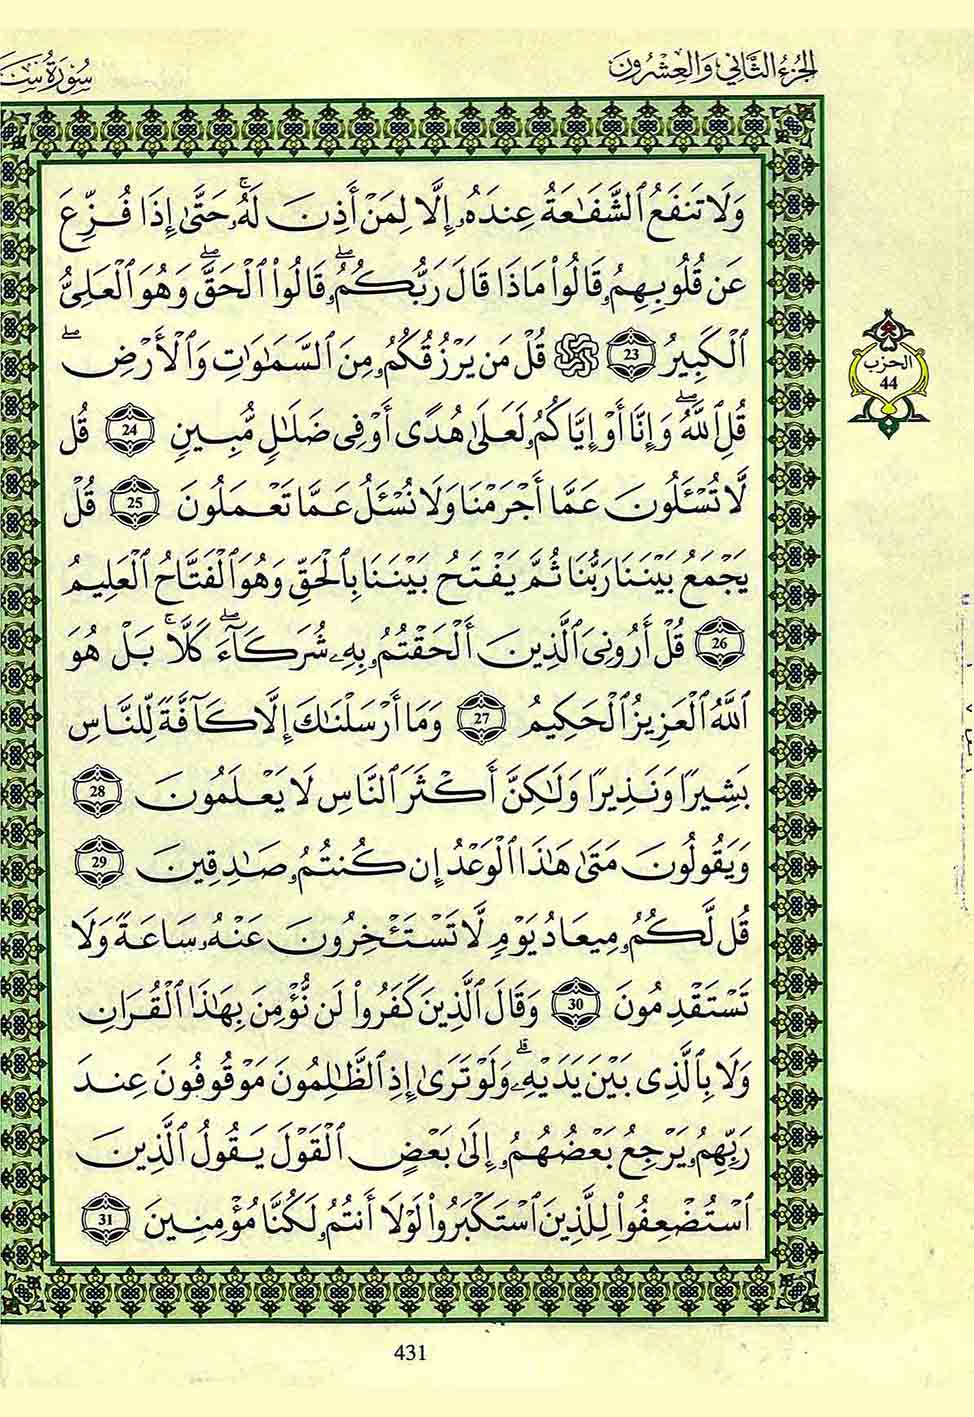 الجُزْءُ الثَّانِي وَالْعِشْرُونَ
سُورَةُ
وَلَا تَنفَعُ ٱلشَّفَٰعَةُ عِندَهُۥٓ إِلَّا لِمَنْ أَذِنَ لَهُۥۚ حَتَّىٰ إِذَا فُزِّعَ
عَن قُلُوبِهِمُۥ قَالُواْ مَاذَا قَالَ رَبُّكُمُۥۖ قَالُواْ ٱلْحَقَّۖ وَهُوَ ٱلْعَلِىُّ
ٱلْكَبِيرُ 23 قُلْ مَن يَرْزُقُكُمُۥ مِنَ ٱلسَّمَٰوَٰتِ وَٱلْأَرْضِۖ
الحزب
44
قُلِ ٱللَّهُۖ وَإِنَّا أَوْ إِيَّاكُمُۥ لَعَلَىٰ هُدًى أَوْ فِى ضَلَٰلٍ مُّبِينٍ 24 قُل
لَّا تُسْـَٔلُونَ عَمَّا أَجْرَمْنَا وَلَا نُسْـَٔلُ عَمَّا تَعْمَلُونَ 25 قُلْ
يَجْمَعُ بَيْنَنَا رَبُّنَا ثُمَّ يَفْتَحُ بَيْنَنَا بِٱلْحَقِّ وَهُوَ ٱلْفَتَّاحُ ٱلْعَلِيمُ
26 قُلْ أَرُونِىَ ٱلَّذِينَ أَلْحَقْتُمُۥ بِهِۦ شُرَكَآءَۖ كَلَّاۚ بَلْ هُوَ
ٱللَّهُ ٱلْعَزِيزُ ٱلْحَكِيمُ 27 وَمَا أَرْسَلْنَٰكَ إِلَّا كَآفَّةً لِّلنَّاسِ
بَشِيرًا وَنَذِيرًا وَلَٰكِنَّ أَكْثَرَ ٱلنَّاسِ لَا يَعْلَمُونَ 28
وَيَقُولُونَ مَتَىٰ هَٰذَا ٱلْوَعْدُ إِن كُنتُمُۥ صَٰدِقِينَ 29
قُل لَّكُمُۥ مِيعَادُ يَوْمٍ لَّا تَسْتَـْٔخِرُونَ عَنْهُۥ سَاعَةً وَلَا
تَسْتَقْدِمُونَ 30 وَقَالَ ٱلَّذِينَ كَفَرُواْ لَن نُّؤْمِنَ بِهَٰذَا ٱلْقُرَانِ
وَلَا بِٱلَّذِى بَيْنَ يَدَيْهِۦۗ وَلَوْ تَرَىٰ إِذِ ٱلظَّٰلِمُونَ مَوْقُوفُونَ عِندَ
رَبِّهِمُۥ يَرْجِعُ بَعْضُهُمُۥ إِلَىٰ بَعْضٍ ٱلْقَوْلَ يَقُولُ ٱلَّذِينَ
ٱسْتُضْعِفُواْ لِلَّذِينَ ٱسْتَكْبَرُواْ لَوْلَا أَنتُمُۥ لَكُنَّا مُؤْمِنِينَ 31
431